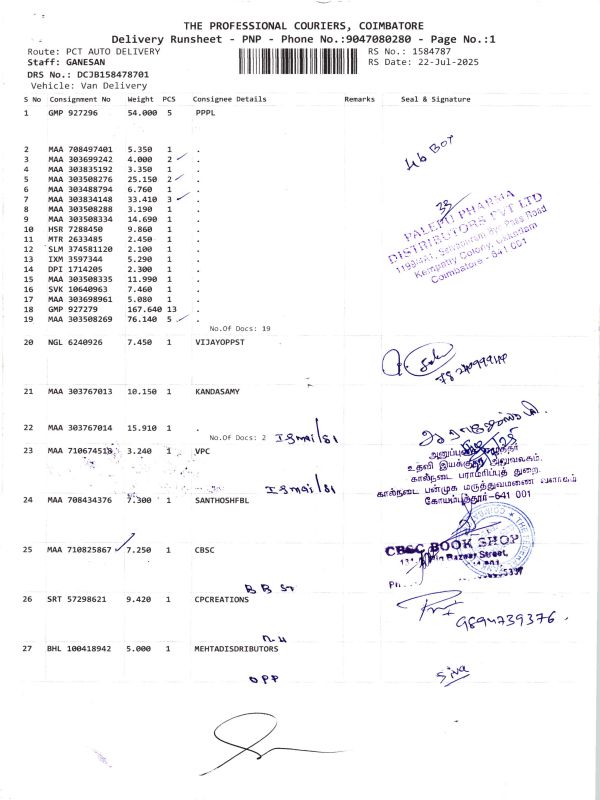 THE PROFESSIONAL COURIERS, COIMBATORE
Delivery Runsheet - PNP - Phone No.:9047080280 - Page No.:1
Route: PCT AUTO DELIVERY
RS No.: 1584787
Staff: GANESAN
RS Date: 22-Jul-2025
DRS No.: DCJB158478701
Vehicle: Van Delivery
S No Consignment No Weight PCS Consignee Details Remarks Seal & Signature
1 GMP 927296 54.000 5 PPPL
2 MAA 708497401 5.350 1 .
3 MAA 303699242 4.000 2 .
4 MAA 303835192 3.350 1 .
5 MAA 303508276 25.150 2 .
6 MAA 303488794 6.760 1 .
7 MAA 303834148 33.410 3 .
8 MAA 303508288 3.190 1 .
9 MAA 303508334 14.690 1 .
10 HSR 7288450 9.860 1 .
11 MTR 2633485 2.450 1 .
12 SLM 374581120 2.100 1 .
13 IXM 3597344 5.290 1 .
14 DPI 1714205 2.300 1 .
15 MAA 303508335 11.990 1 .
16 SVK 10640963 7.460 1 .
17 MAA 303698961 5.080 1 .
18 GMP 927279 167.640 13 .
19 MAA 303508269 76.140 5 .
No.Of Docs: 19
PALEPU PHARMA
DISTRIBUTORS PVT LTD
Coimbatore - 641 001
20 NGL 6240926 7.450 1 VIJAYOPPST
21 MAA 303767013 10.150 1 KANDASAMY
22 MAA 303767014 15.910 1 .
No.Of Docs: 2
23 MAA 710674513 3.240 1 VPC
உதவி இயக்குநர் அலுவலகம்,
கால்நடை பராமரிப்புத் துறை,
கால்நடை பன்முக மருத்துவமனை வளாகம்
கோயம்புத்தூர்-641 001
24 MAA 708434376 7.300 1 SANTHOSHFBL
25 MAA 710825867 7.250 1 CBSC
CBSC BOOK SHOP
B B St
26 SRT 57298621 9.420 1 CPCREATIONS
9894739376
27 BHL 100418942 5.000 1 MEHTADISDRIBUTORS
Siva
OPP